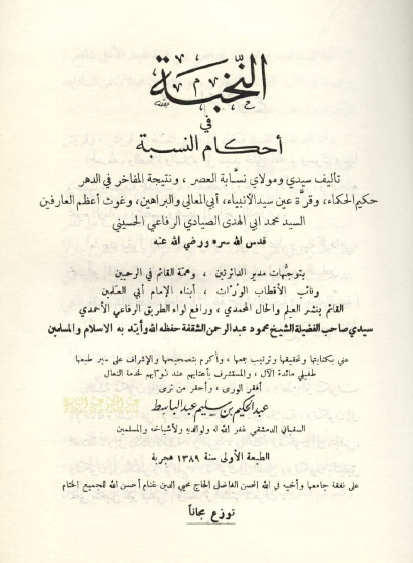 النخبة
في
أحكام النسبة
تأليف سيدي ومولاي نسّابة العصر ، ونتيجة المفاخر في الدهر
حكيم الحكماء، وقرة عين سيد الأنبياء، آبي المعالي والبراهين، وغوث أعظم العارفين
السيد محمد ابي الهدى الصيادي الرفاعي الحسيني
قدس الله سره ورضي الله عنه
بتوجهات مدير الدائرتين ، وهمة القائم في الرحبين
ونائب الأقطاب الوراث ، أبناء الإمام أبي العلمين
القائم بنشر العلم والحال المحمدي ، ورافع لواء الطريق الرفاعي الأحمدي
سيدي صاحب الفضيلة الشيخ محمود عبد الرحمن الشقفة حفظه الله وأيد به الاسلام والمسلمين
عني بكتابتها وتحقيقها وترتيب جمعها ، وأكرم بتصحيحها والإشراف على سير طبعها
طفيلي مائدة الآل ، والمستشرف بأعتابهم عند نوابهم لخدمة النعال
أفقر الورى ، وأحقر من ترى
عبد الحكيم بن سليم عبد الباسط
السفباني الدمشقي غفر الله له ولوالديه ولأشياخه والمسلمين
الطبعة الأولى سنة ١٣٨٩ هجرية
على نفقة جامعها وأخيه في الله المحسن الفاضل الحاج محيي الدين غنام أحسن الله للجميع الختام
توزع مجاناً